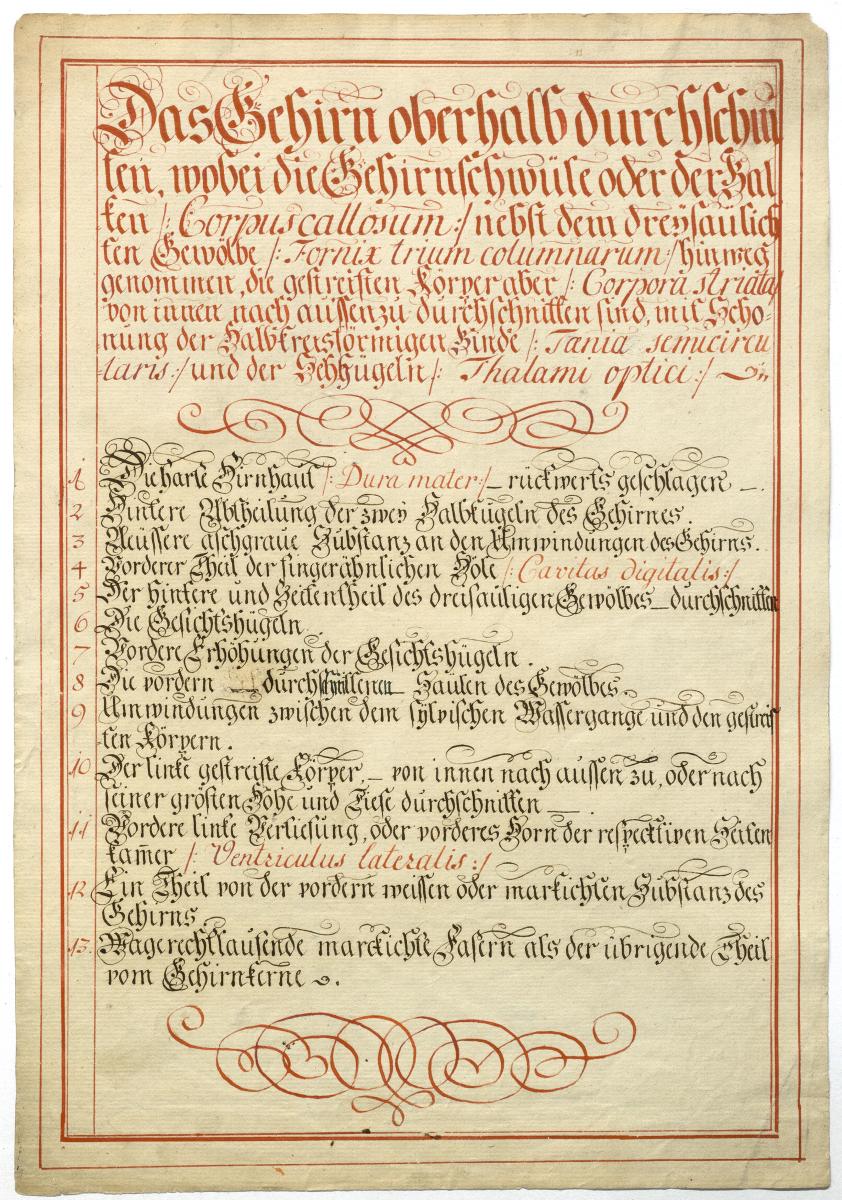 Das Gehirn oberhalb durchschnit
ten, wobei die Gehirnschwüle oder der Bal
ken /: Corpus callosum :/ nebst dem dreysäulich
ten Gewölbe /: Fornix trium columnarum :/ hinweg
genommen, die gestreiften Körper aber /: Corpora striata/
von innen nach aussen zu durchschnitten sind, mit Scho-
nung der Halbkreisförmigen Binde /: Tania semicircu
-laris :/ und der Sehhügeln /: Thalami optici :/
1 Die harte Hirnhaut /: Dura mater :/ – rückwerts geschlagen –.
2 Hintere Abtheilung der zwey Halbkugeln des Gehirnes.
3 Aeüssere aschgraue Substanz an den Umwindungen des Gehirns.
4 Vorderer Theil der fingerähnlichen Höle /: Cavitas digitalis :/
5 Der hintere und Seitentheil des dreisäuligen Gewölbes – durchschnitten
6 Die Gesichtshügeln.
7 Vordere Erhöhungen der Gesichtshügeln.
8 Die vordern – durchschnittenen – Säulen des Gewölbes.
9 Umwindungen zwischen dem sylvischen Wassergange und den gestreif
ten Körpern.
10 Der linke gestreifte Körper, – von innen nach aussen zu, oder nach
seiner grösten Höhe und Tiefe durchschnitten –.
11 Vordere linke Vertiefung, oder vorderes Horn der respecktiven Seiten
kam̄er /: Ventriculus lateralis :/
12 Ein Theil von der vordern weissen oder markichten Substanz des
Gehirns.
13. Wagerechtlaufende marckichte Fasern als der übrigende Theil
vom Gehirnkerne.